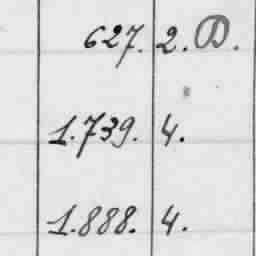 627. 2. D.
1.739. 4.
1.888. 4.